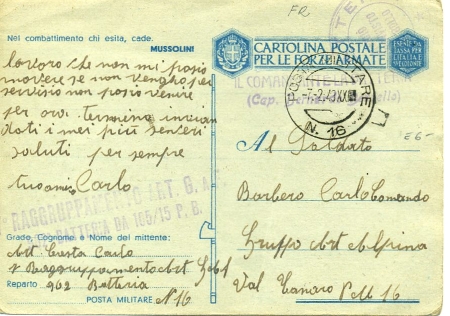 FR
Nel combattimento chi esita, cade.
MUSSOLINI
lavoro che non mi posso
movere se non vengho per
servizio non posso venire
per ora. Termino invian
doti i miei più sinceri
saluti per sempre
tuo amico Carlo
RAGGRUPPAMENTO ART. G. a F.
BATTERIA DA 105/15 P. B.
Grade, Cognome e Nome del mittente:
Art Costa Carlo
Raggruppamento Art
Reparto 902 Batteria
POSTA MILITARE N 16
CARTOLINA POSTALE
PER LE FORZE ARMATE
ESENTE DA
TASSA PER
L'ITALIA E
IL COMANDANTE
(Cap.
POSTA MILITARE
N. 16
E6-
Al Soldato
Barbero Carlo Comando
Gruppo Art Alpina
Val Tanaro P M 16